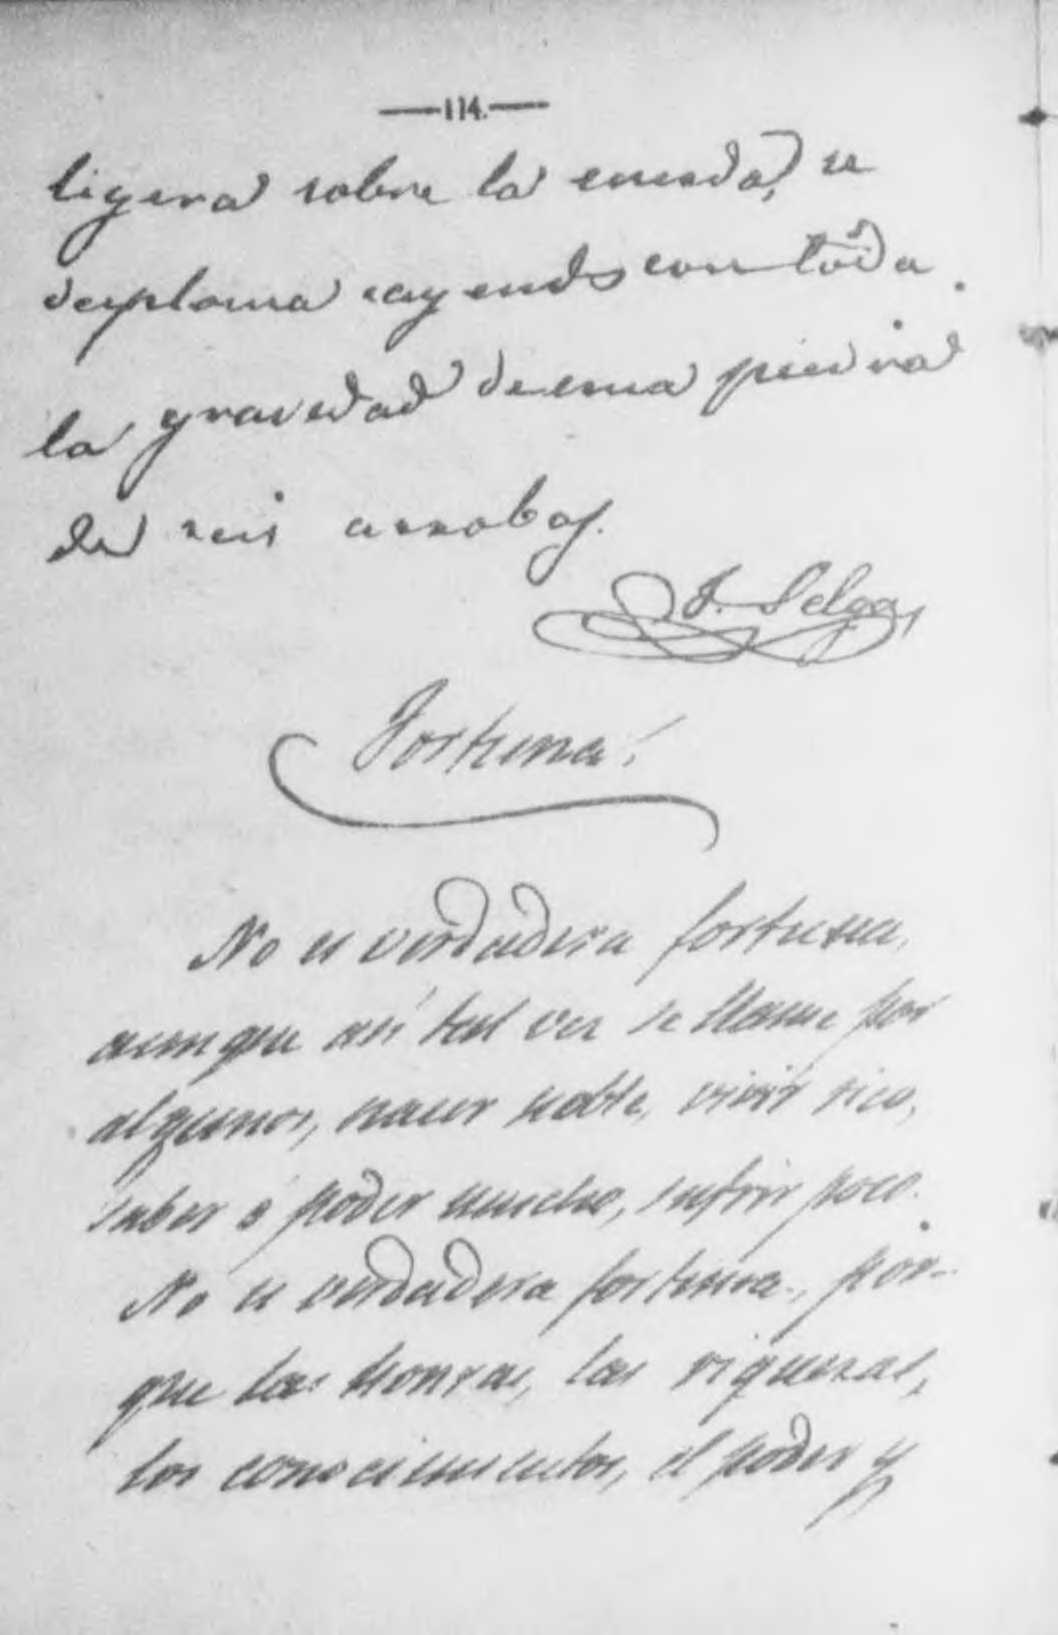 —114.—
ligera sobre la cuerda, se
desploma cayendo con toda
la gravedad de una piedra
de seis arrobas.
J. Selgas
Fortuna!
No es verdadera fortuna,
aunque así tal vez se llame por
algunos, nacer noble, vivir rico,
saber ó poder mucho, sufrir poco.
No es verdadera fortuna, por-
que las honras, las riquezas,
los conocimientos, el poder y